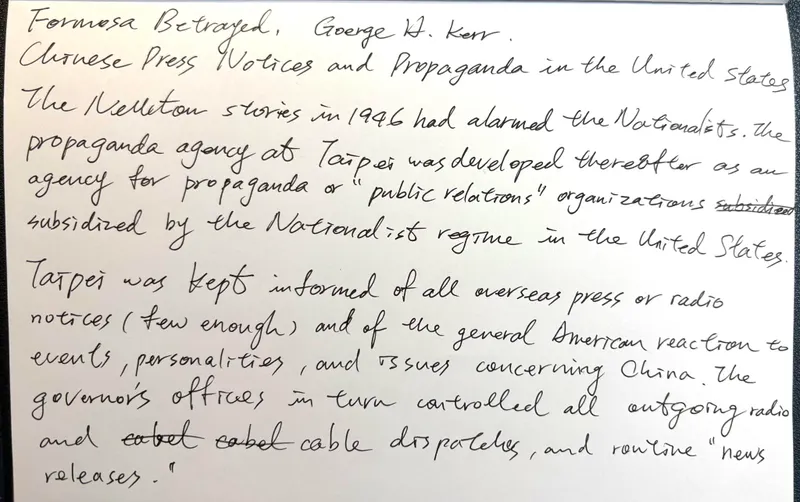 Formosa Betrayed, Goerge H. Kerr.
Chinese Press Notices and Propaganda in the United States
The Newton stories in 1946 had alarmed the Nationalists. The
propaganda agency at Taipei was developed thereafter as an
agency for propaganda or "public relations" organizations subsidized
subsidized by the Nationalist regime in the United States.
Taipei was kept informed of all overseas press or radio
notices (few enough) and of the general American reaction to
events, personalities, and issues concerning China. The
governor's offices in turn controlled all outgoing radio
and cabel cabel cable dispatches, and routine "news
releases."